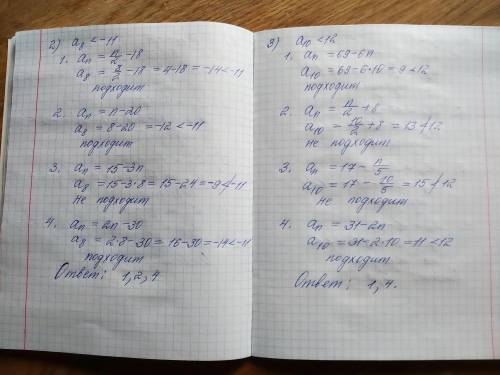 2) a₈ < -11
1. aₙ = n/2 - 18
a₈ = 8/2 - 18 = 4-18 = -14 < -11
подходит
2. aₙ = n - 20
a₈ = 8 - 20 = -12 < -11
подходит
3. aₙ = 15 - 3n
a₈ = 15 - 3·8 = 15 - 24 = -9 ≮ -11
не подходит
4. aₙ = 2n - 30
a₈ = 2·8 - 30 = 16 - 30 = -14 < -11
подходит
Ответ: 1, 2, 4.
3) a₁₀ < 12
1. aₙ = 69 - 6n
a₁₀ = 69 - 6·10 = 9 < 12
подходит
2. aₙ = n/2 + 8
a₁₀ = 10/2 + 8 = 13 ≮ 12
не подходит
3. aₙ = 17 - n/5
a₁₀ = 17 - 10/5 = 15 ≮ 12
не подходит
4. aₙ = 31 - 2n
a₁₀ = 31 - 2·10 = 11 < 12
подходит
Ответ: 1, 4.